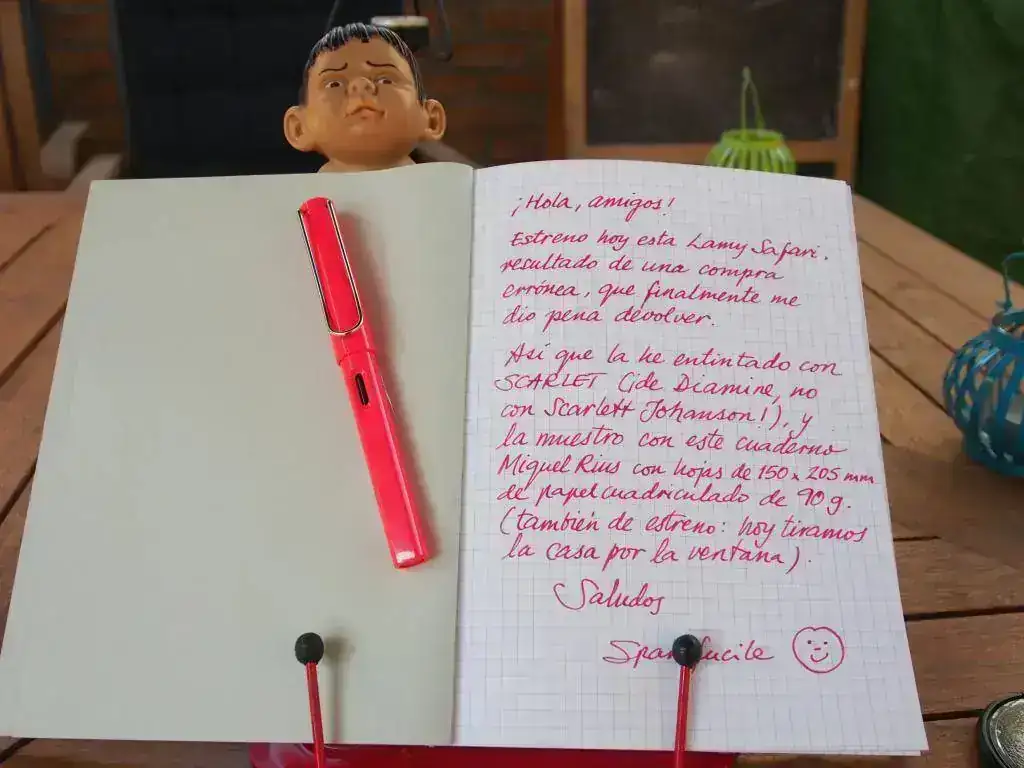 ¡Hola, amigos!
Estreno hoy esta Lamy Safari,
resultado de una compra
errónea, que finalmente me
dio pena devolver.
Así que la he entintado con
SCARLET (¡de Diamine, no
con Scarlett Johanson!), y
la muestro con este cuaderno
Miguel Rius con hojas de 150 x 205 mm
de papel cuadriculado de 90 g.
(también de estreno: hoy tiramos
la casa por la ventana).
Saludos